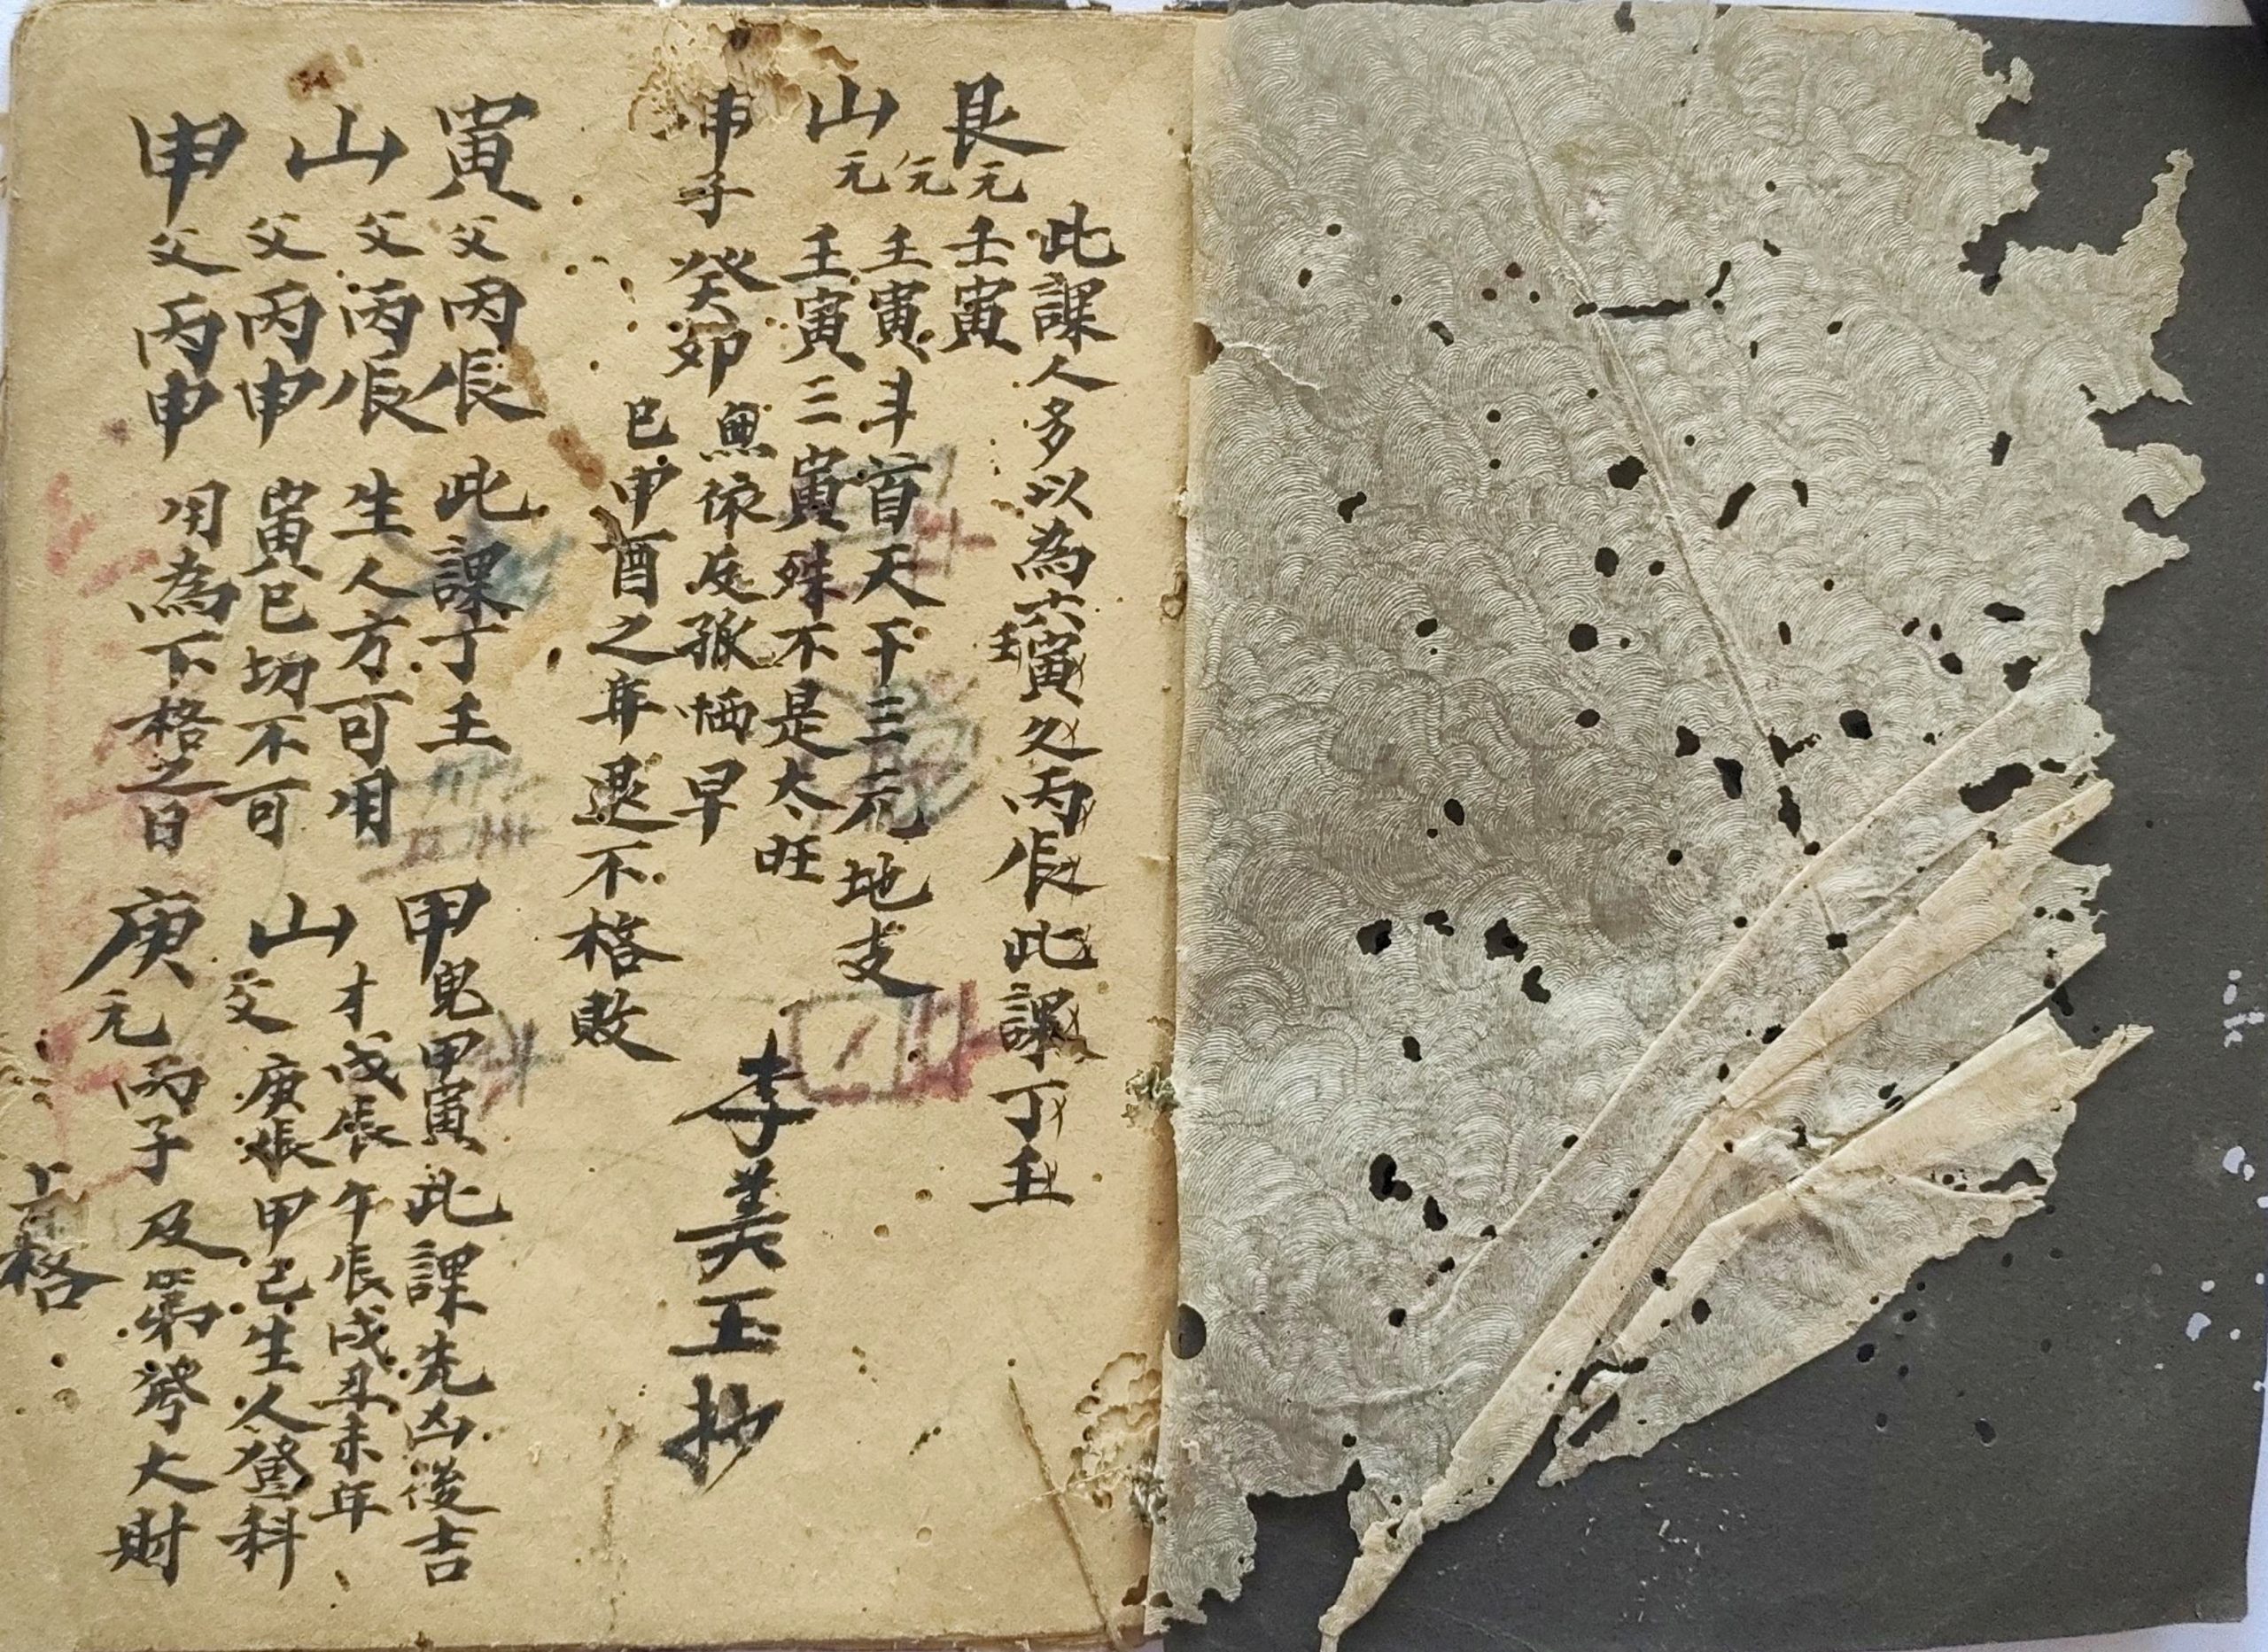 此課人多以為六寅久丙辰此課丁壬
壬
艮元壬寅
元壬寅斗首天干三元地支
山元壬寅三寅殊不是太旺
子癸卯無依反孤恓早
巳申酉之年退不格敗
李美玉抄
寅父丙辰此課丁壬
父丙辰生人方可用
山
父丙申寅巳切不可可
申父丙申用為下格之日
甲鬼甲寅此課先凶後吉
才戊辰午辰戌丑未年
山
父庚辰甲己生人登科
庚元丙子及第發大財
上格